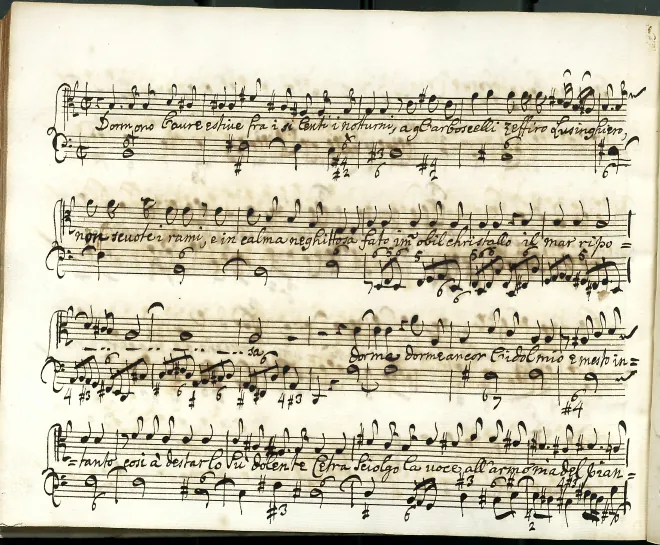 Dormono l'aure estive fra i silenti i notturni, a gl'arboscelli Zeffiro lusinghiero,
non scuote i rami, e in calma neghittosa fato im obil christallo il mar ripo =
sa dorme dorme ancor l'idol mio e mesto in=
=tanto cosi à destarlo sù dolente Cetra sciolgo la voce all'armonia del pian=